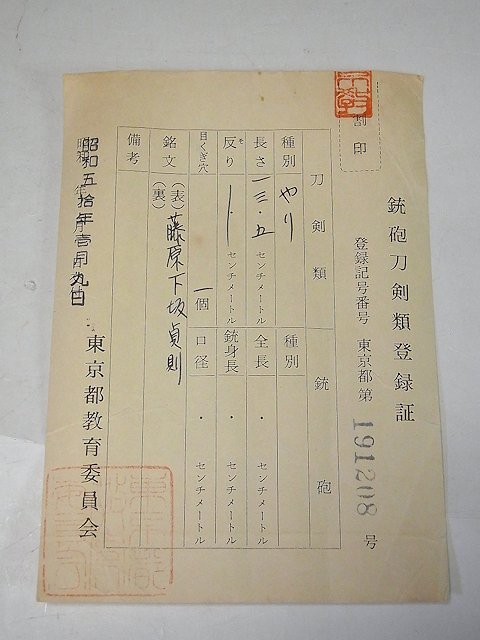 銃砲刀剣類登録証
登録記号番号 東京都第 191208 号
割印
刀剣類
銃砲
種別 やり
種別
長さ 一三・五 センチメートル
全長 ・ センチメートル
反り ・ センチメートル
銃身長 ・ センチメートル
目くぎ穴 一個
口径 ・ センチメートル
銘文 (表) 藤原下坂貞則
(裏)
備考
昭和五拾年壱月九日
東京都教育委員会